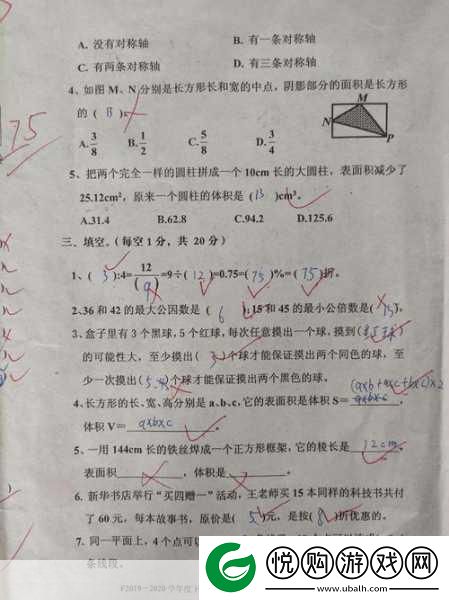 A. 没有对称轴 B. 有一条对称轴
C. 有两条对称轴 D. 有三条对称轴
4、如图 M、N 分别是长方形长和宽的中点，阴影部分的面积是长方形
的（ B ）。
M
N
P
A. 3/8 B. 1/2 C. 5/8 D. 3/4
75
5、把两个完全一样的圆柱拼成一个 10cm 长的大圆柱，表面积减少了
25.12cm²，原来一个圆柱的体积是（ B ）cm³。
A.31.4 B.62.8 C.94.2 D.125.6
三、填空。（每空 1 分，共 20 分）
1、（ 3 ）:4= 12/( 9 ) =9÷（ 12 ）=0.75=（ 75 ）%=（ 75 ）折。
2、36 和 42 的最大公因数是（ 6 ）；15 和 45 的最小公倍数是（ 15 ）。
3、盒子里有 3 个黑球，5 个红球，每次任意摸出一个球，摸到（ 红球 ）
的可能性大，至少摸出（ 3 ）个球才能保证摸出两个同色的球，至
少一次摸出（ ）个球才能保证摸出两个黑色的球。
4、长方形的长、宽、高分别是 a、b、c，它的表面积是体积 S= (axb+axc+bxc)x2
体积 V= axbxc 。
5、一用 144cm 长的铁丝焊成一个正方形框架，它的棱长是 12cm ，
表面积 ，体积是 。
6、新华书店举行“买四赠一”活动，王老师买 15 本同样的科技书共付
了 60 元，每本故事书，原价是（ 5 ）元，是按（ 8 ）折优惠的。
7、同一平面上，4 个点可以
条线段。
F2019－2020 学年度
悦购游戏网
www.ubahb.com